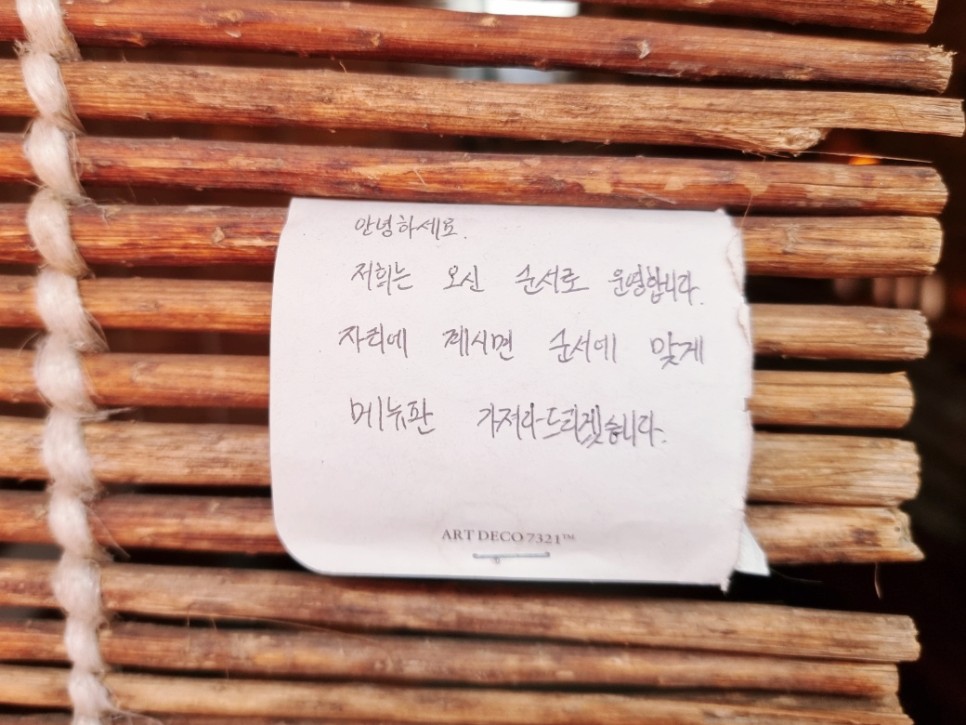 안녕하세요.
저희는 오신 순서로 운영합니다.
자리에 계시면 순서에 맞게
메뉴판 가져다드리겠습니다.
ART DECO 7321™